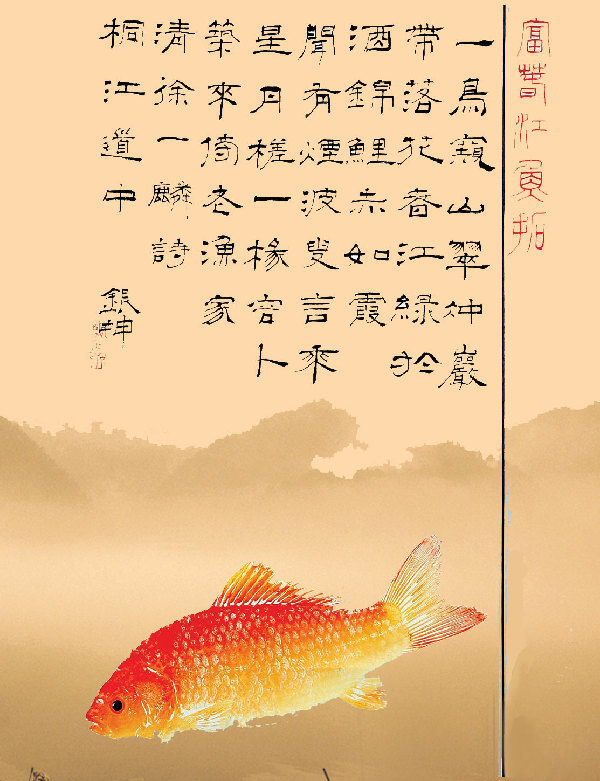 富春江魚拓
一鳥窺山翠冲巖
帶落花春江綠於
酒錦鯉赤如霞
聞有煙波叟言來
星月槎一椽容卜
築來倚老漁家
清徐一麟詩
桐江道中
銀坤